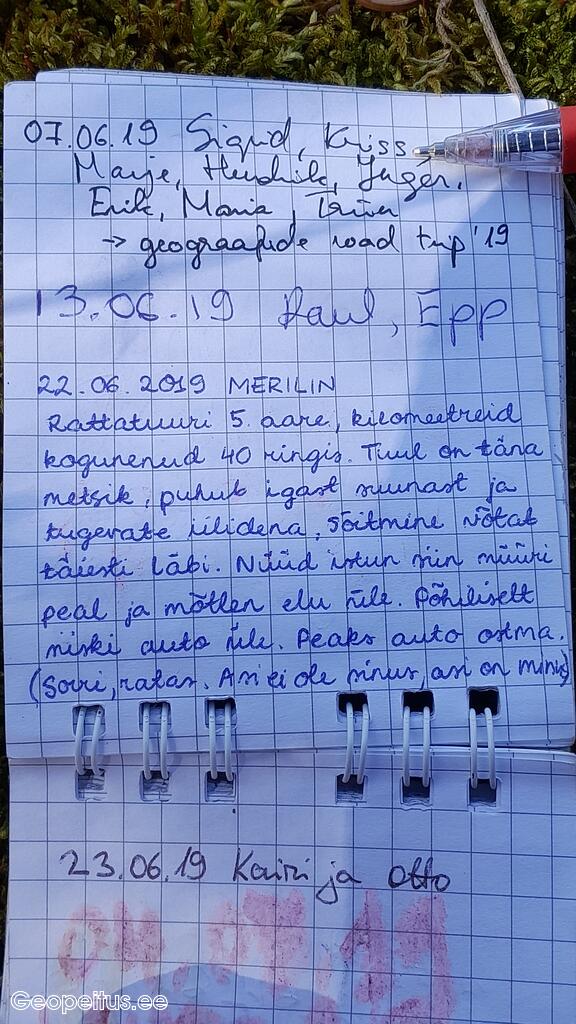 07.06.19 Sigrid, Kriss
Marje, Hendrik, Jürgen,
Erik, Maria, Triin
-> geograafide road trip '19
13.06.19 Raul, Epp
22.06.2019 MERILIN
Rattatuuri 5. aare, kilomeetreid
kogunenud 40 ringis. Tuul on täna
metsik, puhub igast suunast ja
tugevate iilidena, sõitmine võtab
täiesti läbi. Nüüd istun siin müüri
peal ja mõtlen elu üle. Põhiliselt
miski auto üle. Peaks auto ostma.
(Sorri, ratas. Asi ei ole sinus, asi on minus)
23.06.19 Kairi ja Otto
Geopeitus.ee